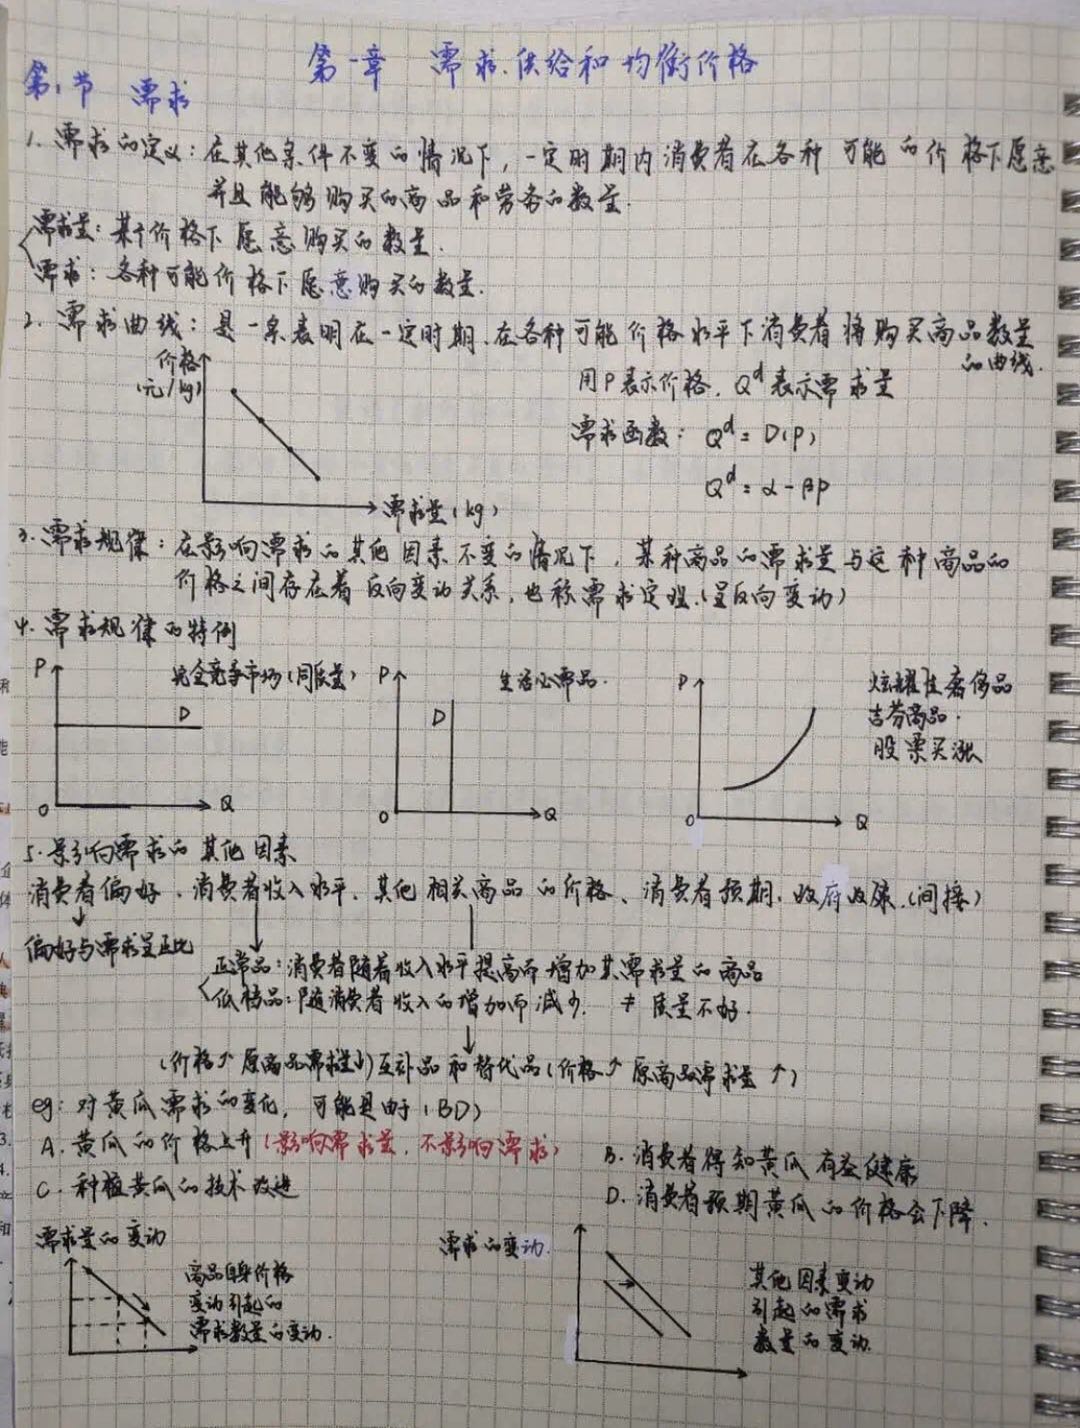 第一章 需求、供给和均衡价格
第1节 需求
1. 需求的定义：在其他条件不变的情况下，一定时期内消费者在各种可能的价格下愿意
并且能够购买的商品和劳务的数量.
需求量：某个价格下愿意购买的数量.
需求：各种可能价格下愿意购买的数量.
2. 需求曲线：是一条表明在一定时期、在各种可能价格水平下消费者将购买商品数量
的曲线.
价格
(元/kg)
需求量(kg)
用P表示价格, Qᵈ表示需求量
需求函数： Qᵈ = D(P)
Qᵈ = α - βP
3. 需求规律：在影响需求的其他因素不变的情况下，某种商品的需求量与这种商品的
价格之间存在着反向变动关系，也称需求定理.(呈反向变动)
4. 需求规律的特例
P 完全竞争市场(同质量)
D
O Q
P 生活必需品.
D
O Q
P 炫耀性奢侈品
吉芬商品.
股票买涨
O Q
5. 影响需求的其他因素
消费者偏好、消费者收入水平、其他相关商品的价格、消费者预期、政府政策.(间接)
偏好与需求呈正比
正常品：消费者随着收入水平提高而增加其需求量的商品
低档品：随消费者收入的增加而减少. ≠ 质量不好.
(价格↑原商品需求量↓)互补品和替代品(价格↑原商品需求量↑)
eg：对黄瓜需求的变化，可能是由于(BD)
A. 黄瓜的价格上升(影响需求量，不影响需求)
B. 消费者得知黄瓜有益健康
C. 种植黄瓜的技术改进
D. 消费者预期黄瓜的价格会下降.
需求量的变动
商品自身价格
变动引起的
需求数量的变动.
需求的变动.
其他因素变动
引起的需求
数量的变动.